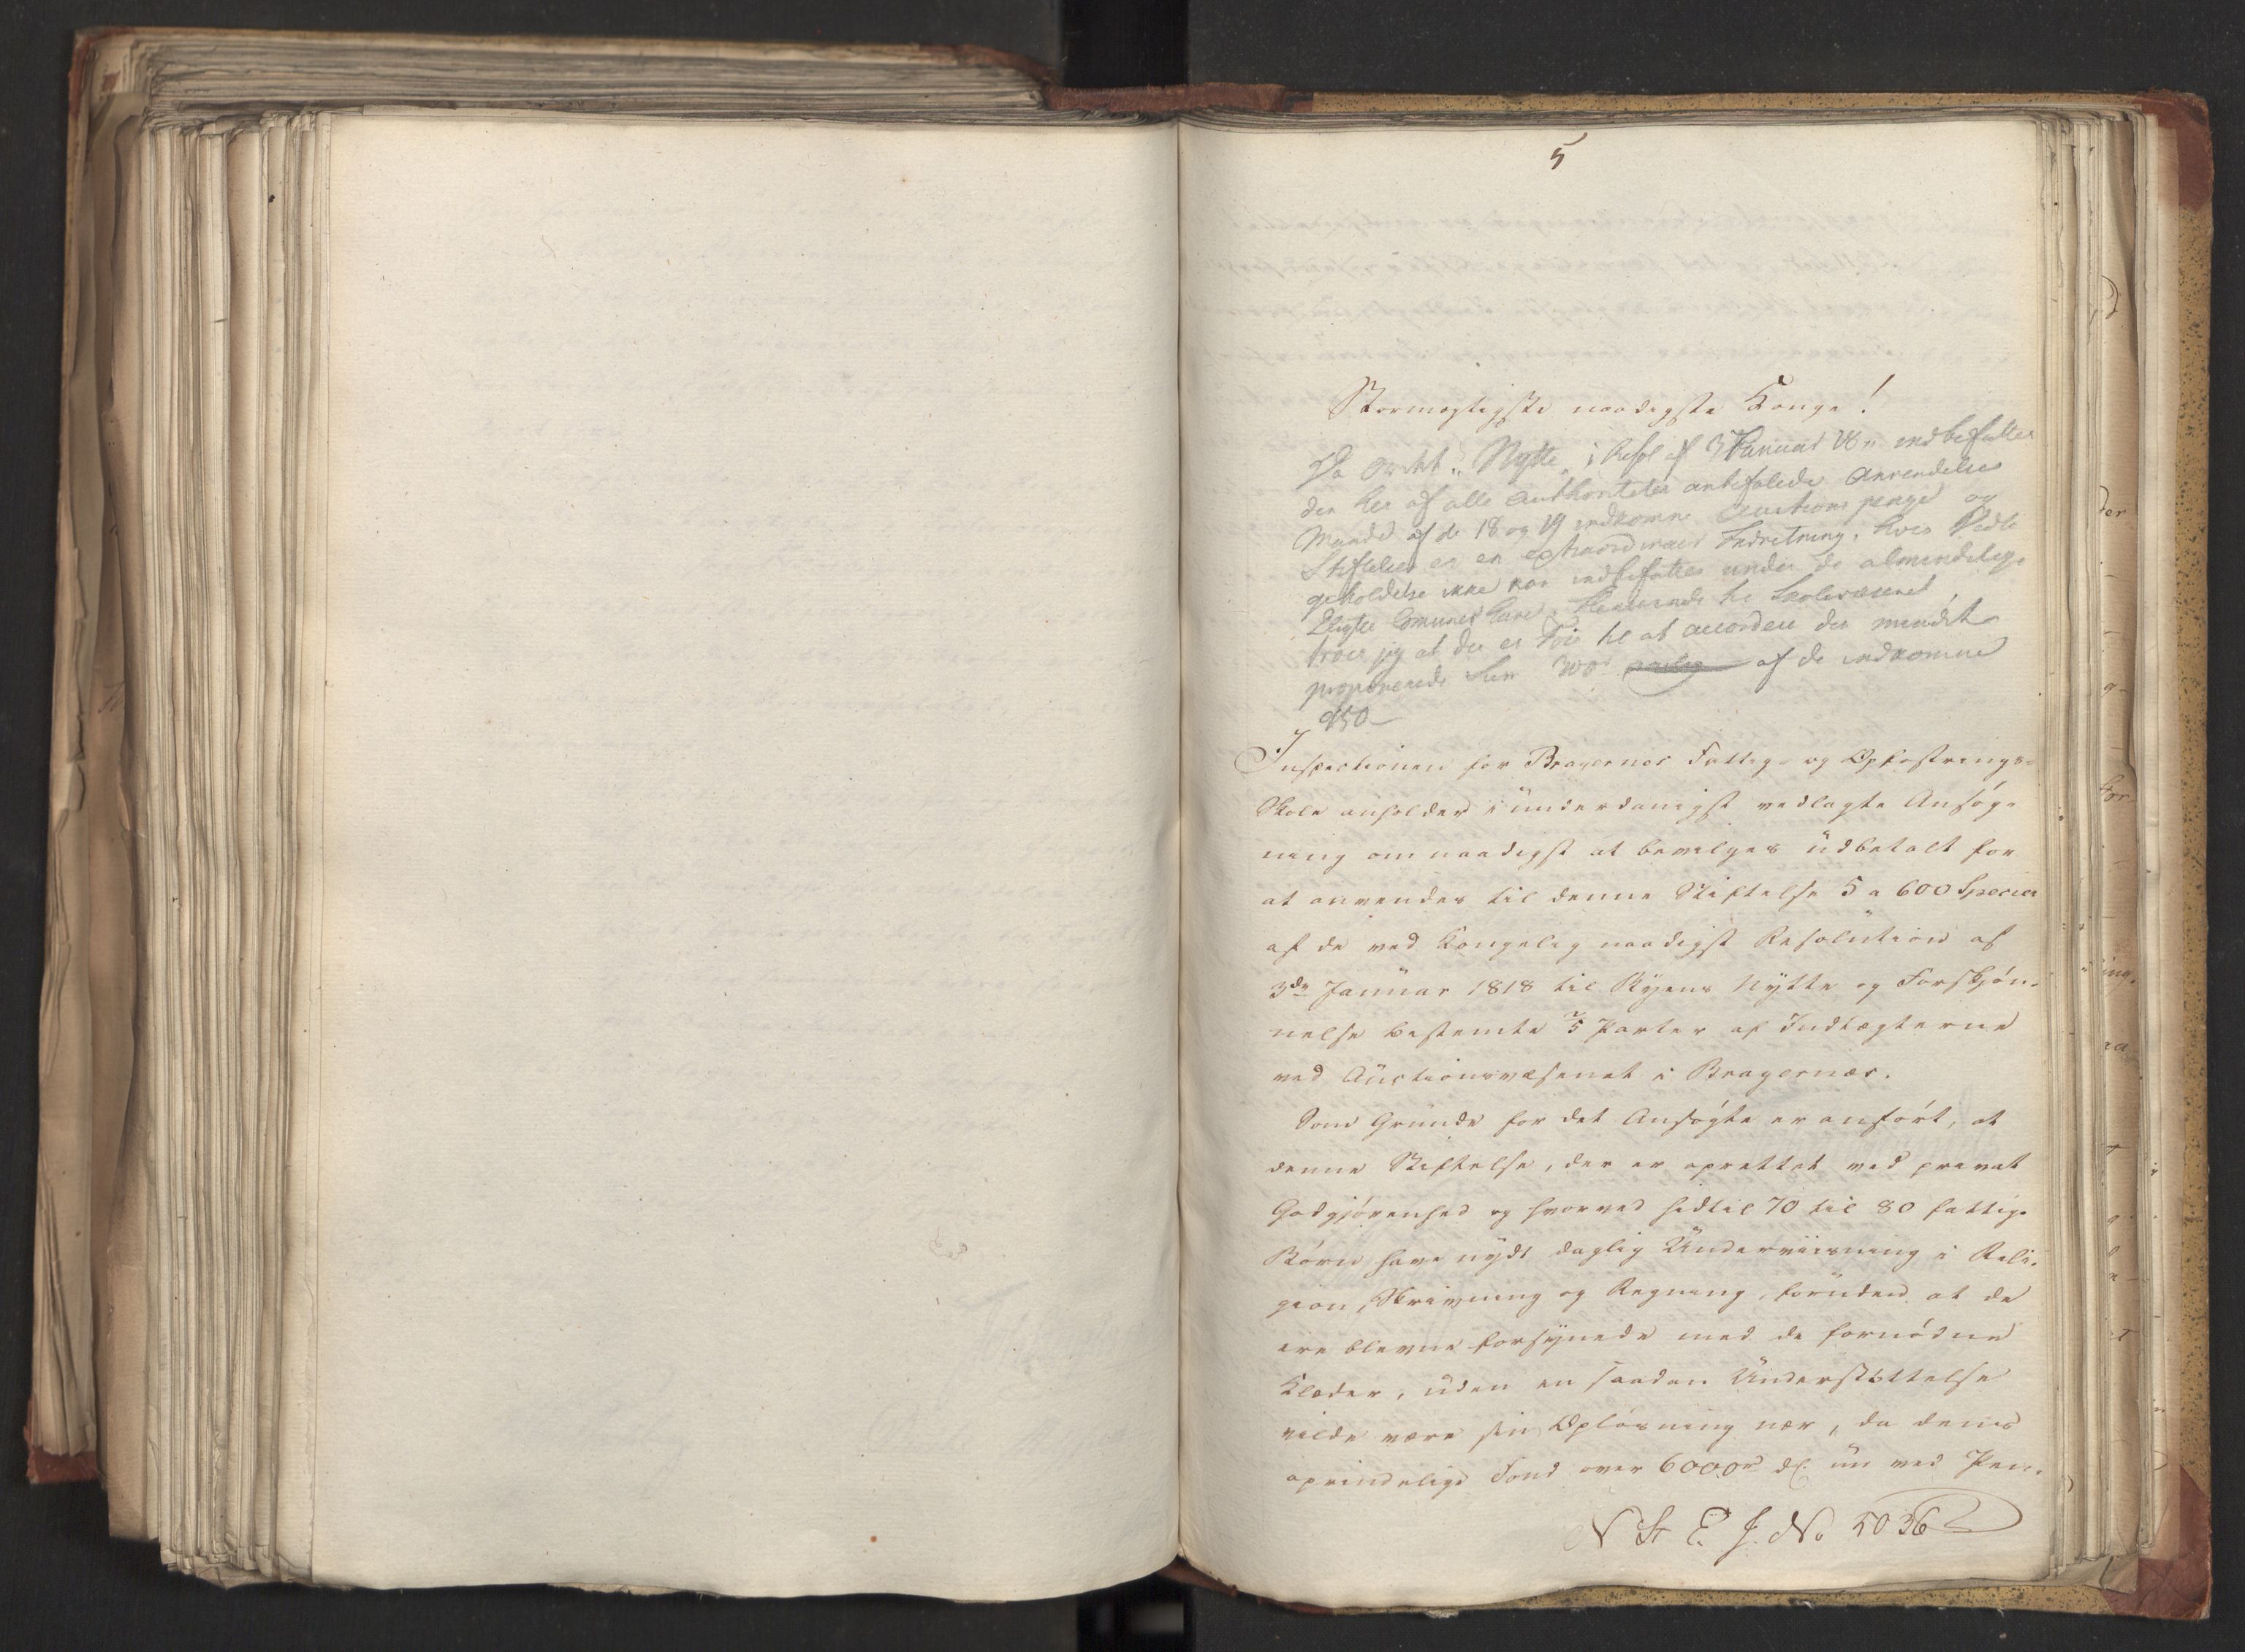 5
Stormægtigste naadigste Konge!
Da Ordet "Nytte" i Resol af 3 Januar 18 indbefatter
den her af alle Authoriteter anbefalede Anvendelses
Maade af de 18 og 19 indkomne Auctions penge og
Stiftelsen er en extraordinair Indretning, hvis Vedli
geholdelse ikke kan indbefattes under de almindelige
Byens Comunes henhørende til Skolevæsenet,
troer jeg at der er Föie til at accordere den mindst
proponerede Sum 300 af de indkomne
950
Inspectionen for Bragernes Fattig- og Opfostrings-
Skole anholder i underdanigst vedlagte Ansøg-
ning om naadigst at bevilges udbetalt for
at anvendes til denne Stiftelse 5 a 600 Specier
af de ved Kongelig naadigst Resolution af
3die Januar 1818 til Byens Nytte og Forskjøn-
nelse bestemte 2/5 Parter af Indtægterne
ved Auctionsvæsenet i Bragernæs.
Som Grunde for det Ansøgte er anført, at
denne Stiftelse, der er oprettet ved privat
Godgjørenhed og hvorved hidtil 70 til 80 fattige
Börn have nydt daglig Underviisning i Reli-
gion, Skrivning og Regning, foruden at de
ere blevne forsynede med de fornødne
Klæder, uden en saadan Understøttelse
vilde være sin Opløsning nær, da dens
oprindelige Fond over 6000 rd nu ved Pen-
N St E. J. No 5036